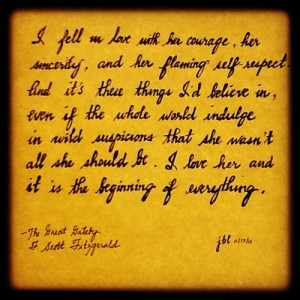 I fell in love with her courage, her
sincerity, and her flaming self-respect.
And it's these things I'd believe in,
even if the whole world indulge
in wild suspicions that she wasn't
all she should be. I love her and
it is the beginning of everything.
-The Great Gatsby
F Scott Fitzgerald
jbl